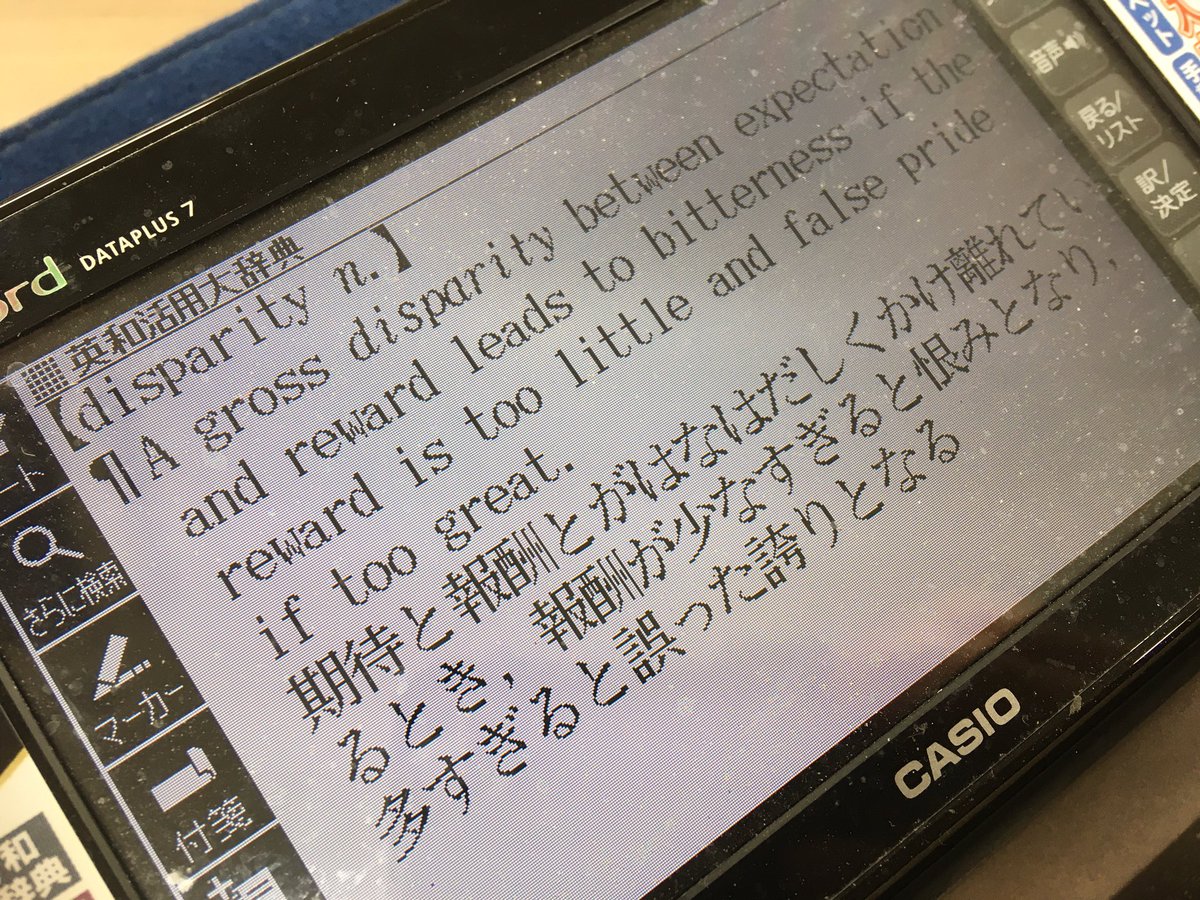 DATAPLUS 7
英和活用大辞典
【disparity n.】
¶A gross disparity between expectation
and reward leads to bitterness if the
reward is too little and false pride
if too great.
期待と報酬とがはなはだしくかけ離れてい
るとき, 報酬が少なすぎると恨みとなり,
多すぎると誤った誇りとなる
さらに検索
マーカー
付箋
音声
戻る/
リスト
訳/
決定
CASIO
和
辞典